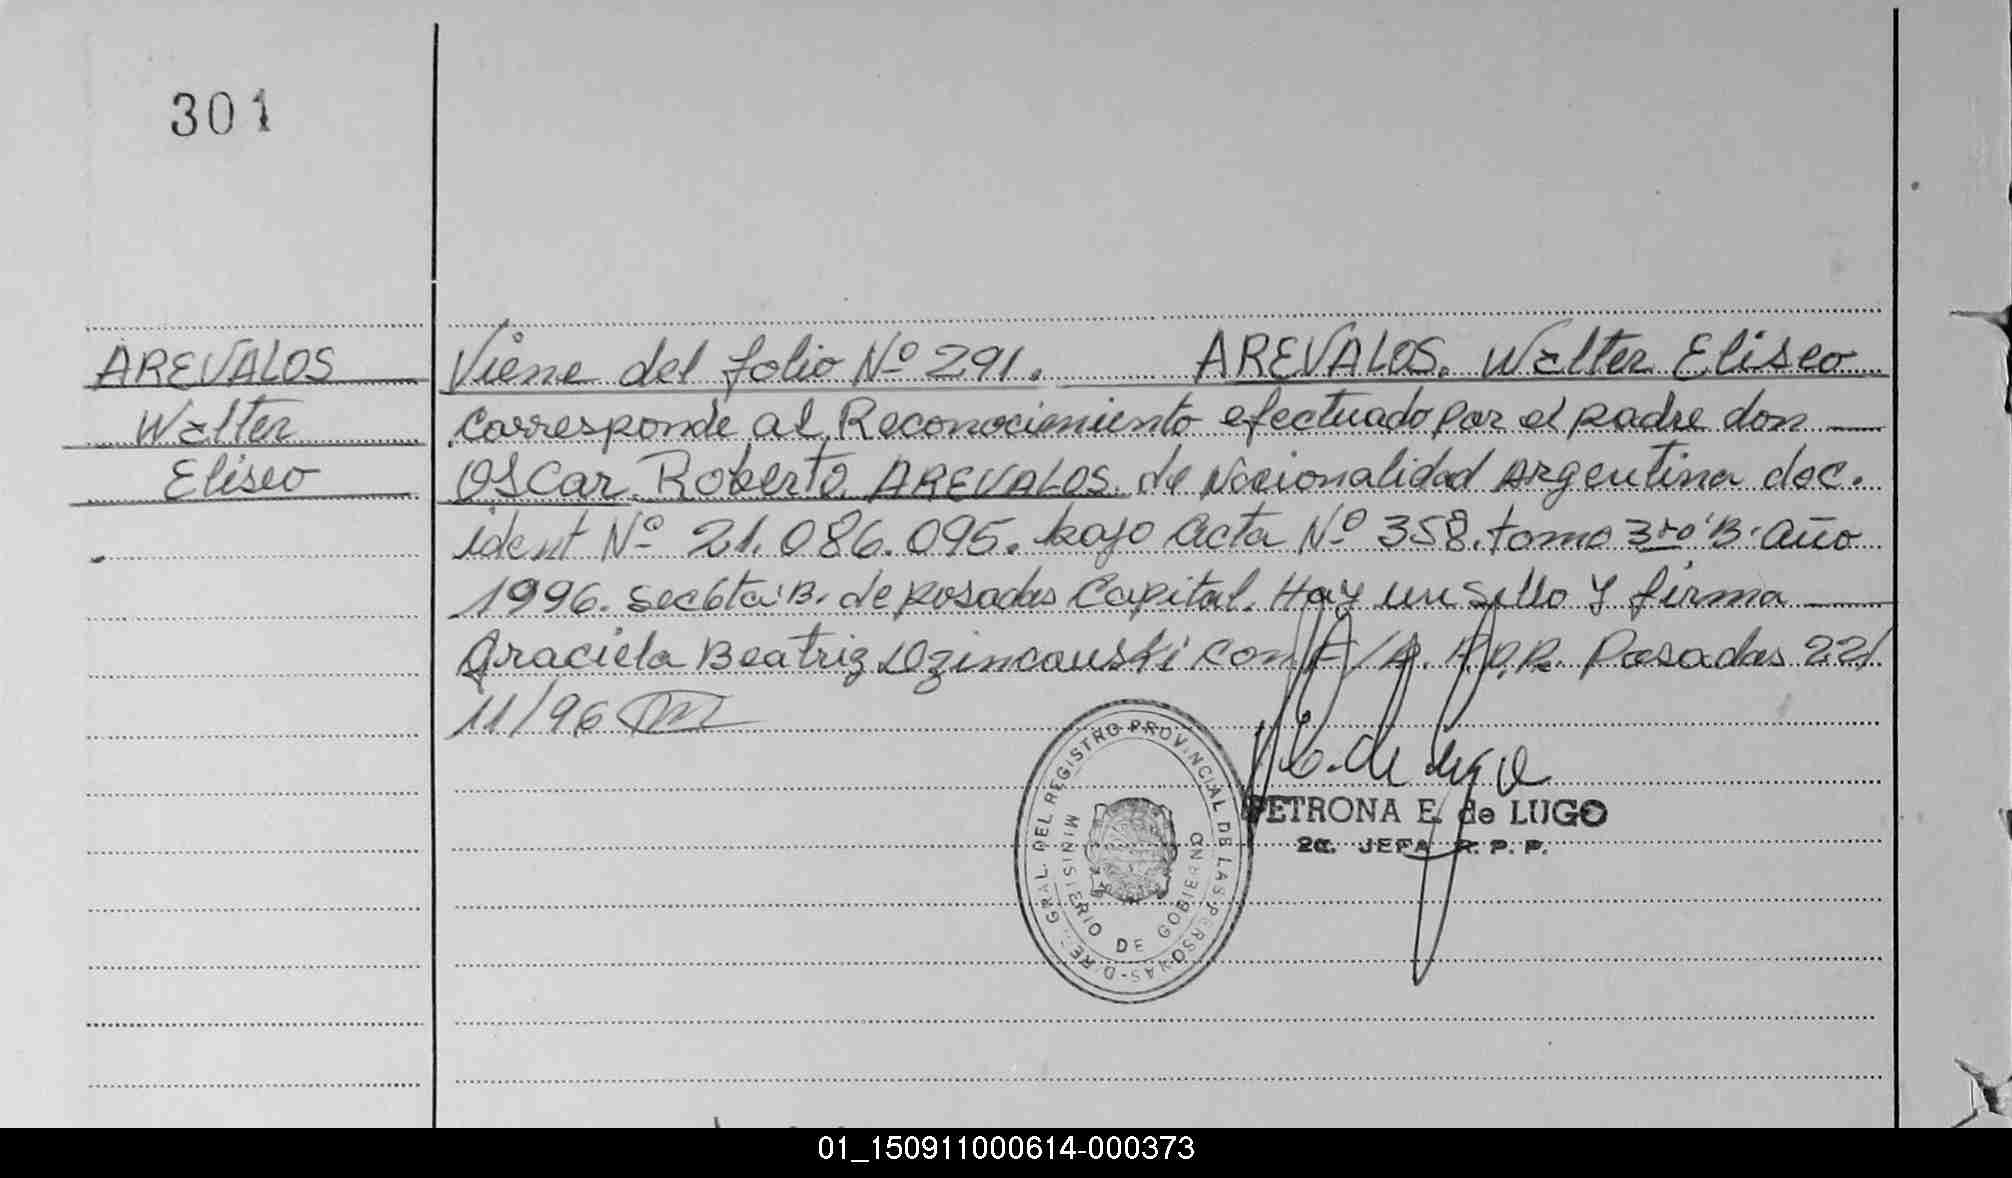 301
AREVALOS
Walter
Eliseo
Viene del folio Nº 291. AREVALOS. Walter Eliseo
Corresponde al Reconocimiento efectuado por el padre don
OSCar Roberto AREVALOS de Nacionalidad Argentina doc.
ident Nº 21.086.095. bajo acta Nº 358. tomo 3ro B. año
1996. Secc 6ta B. de Posadas Capital. Hay un sello y firma
Graciela Beatriz Dzincouski con F/A. R.P.P. Posadas 22/
11/96
DIREC. GRAL. DEL REGISTRO PROVINCIAL DE LAS PERSONAS-
MINISTERIO DE GOBIERNO
P. E. de Lugo
PETRONA E. de LUGO
2a. JEFA R. P. P.
01_150911000614-000373